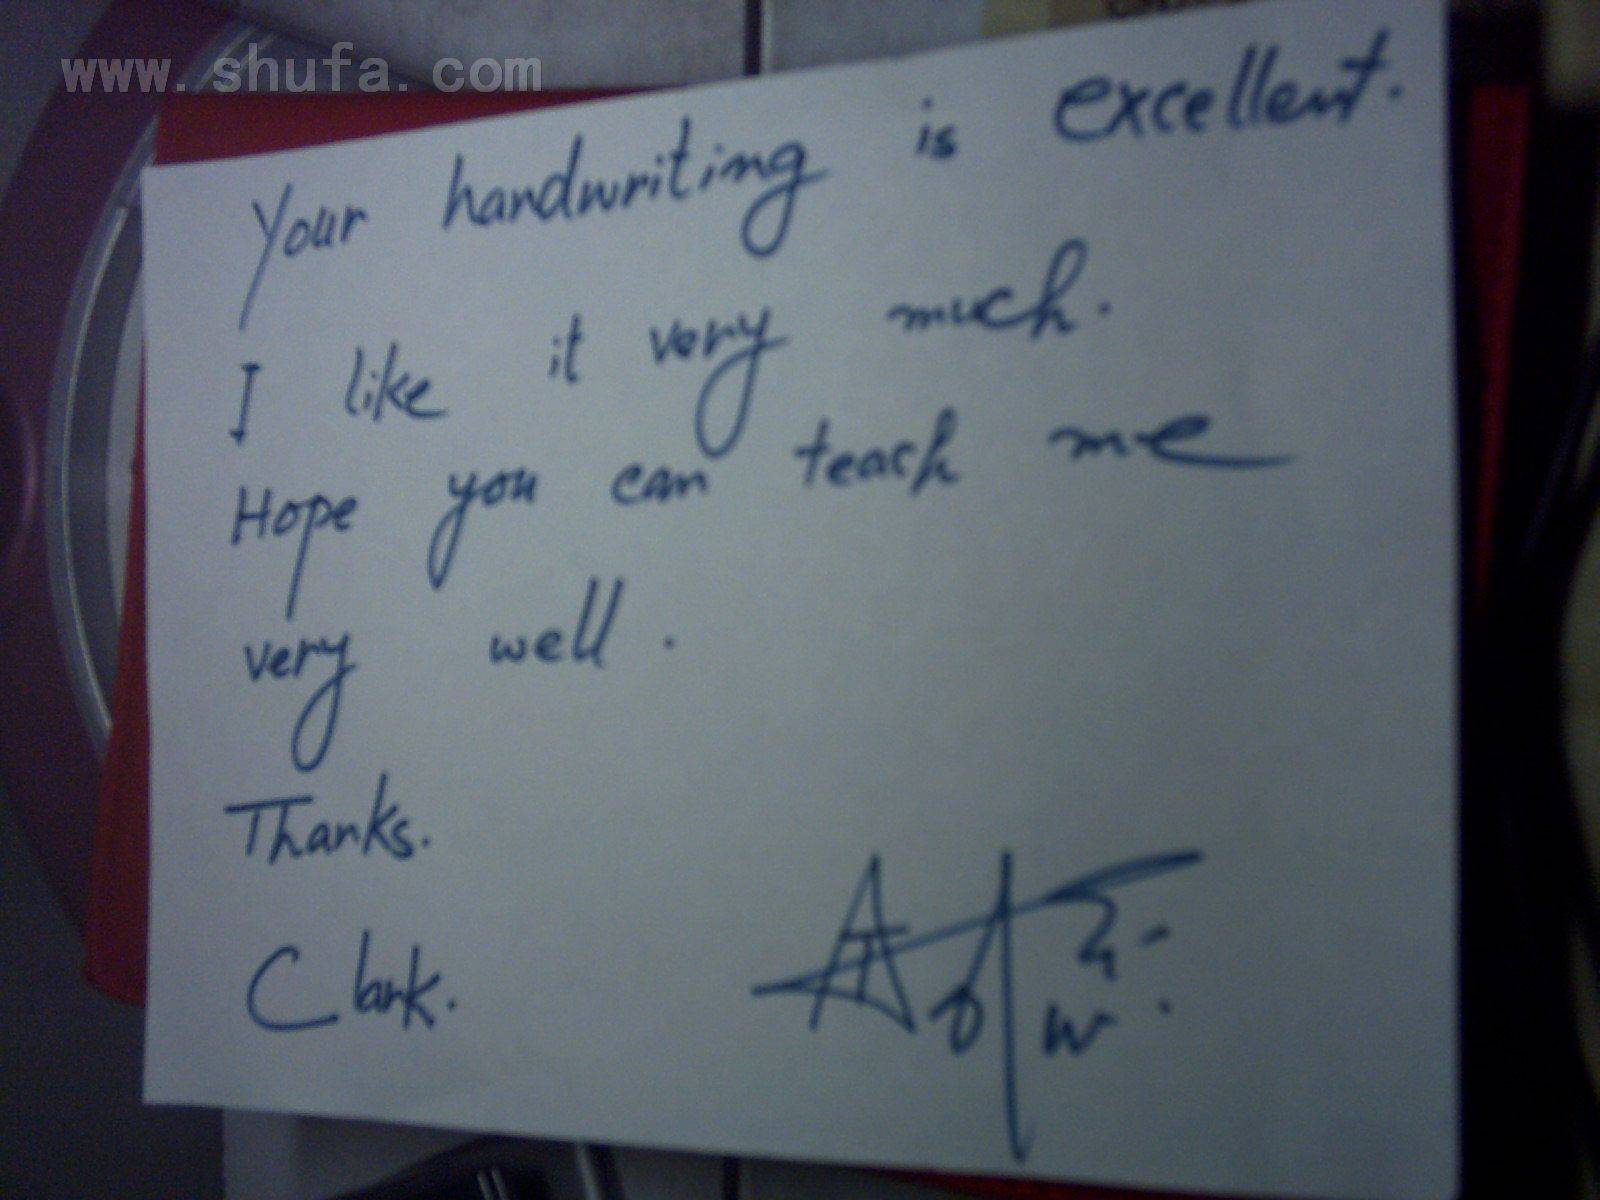 www.shufa.com
Your handwriting is excellent.
I like it very much.
Hope you can teach me
very well.
Thanks.
Clark.